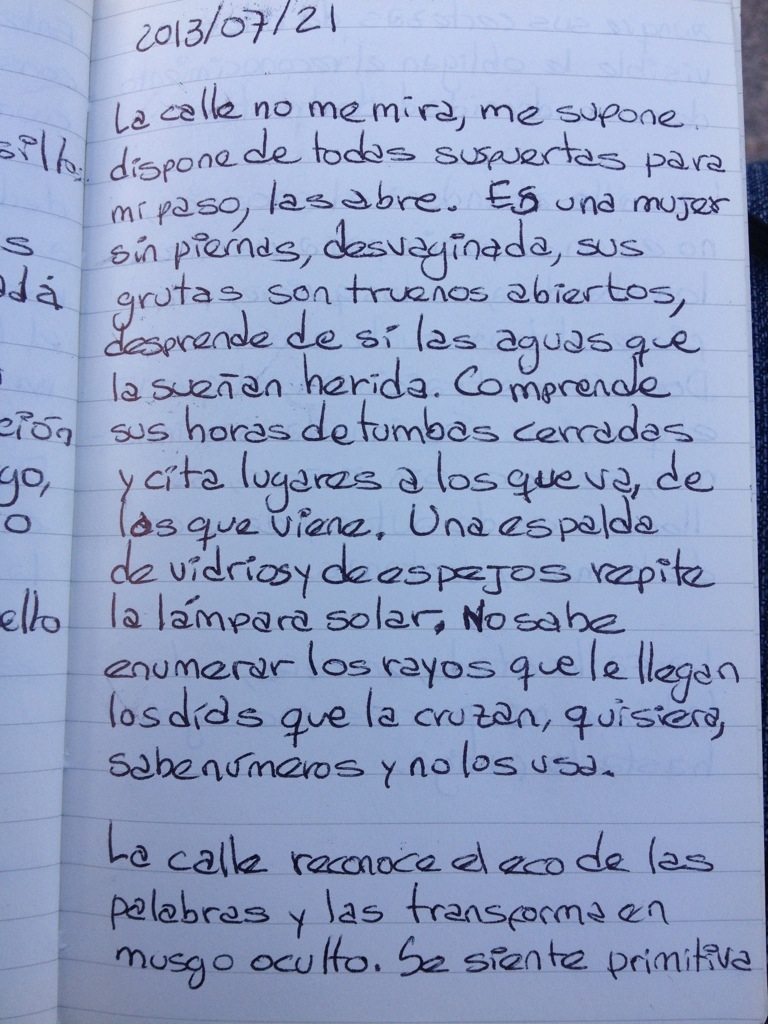 2013/07/21
La calle no me mira, me supone.
dispone de todas sus puertas para
mi paso, las abre. Es una mujer
sin piernas, desvaginada, sus
grutas son truenos abiertos,
desprende de sí las aguas que
la sueñan herida. Comprende
sus horas de tumbas cerradas
y cita lugares a los que va, de
los que viene. Una espalda
de vidrios y de espejos repite
la lámpara solar. No sabe
enumerar los rayos que le llegan
los días que la cruzan, quisiera,
sabe números y no los usa.
La calle reconoce el eco de las
palabras y las transforma en
musgo oculto. Se siente primitiva
s
adá
ción
go,
o
ello